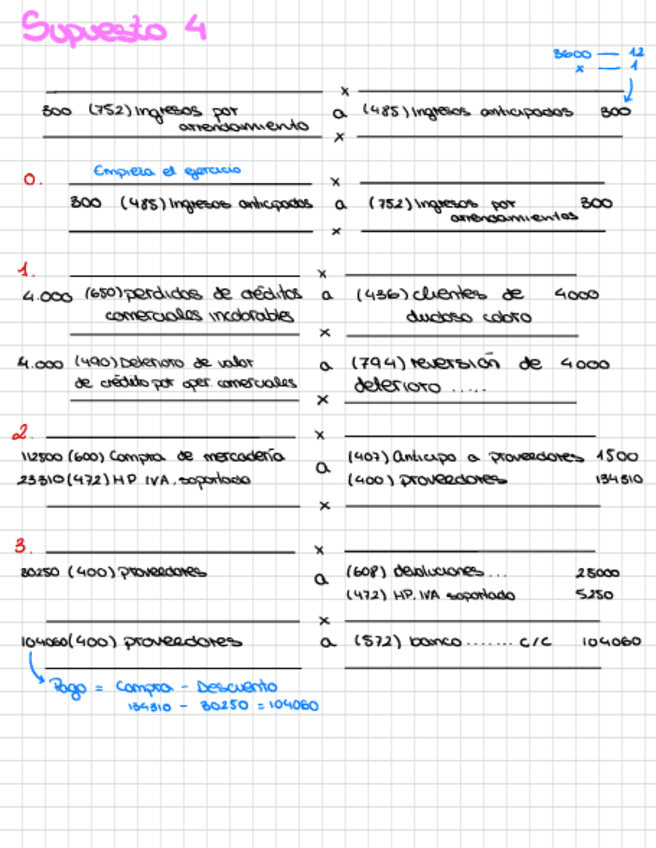 Supuesto 4
3600 — 12
x — 1
x
300 (752) Ingresos por a (485) Ingresos anticipados 300
arrendamiento
x
0. Empieza el ejercicio
x
300 (485) Ingresos anticipados a (752) Ingresos por 300
arrendamientos
x
1. x
4.000 (650) perdidas de créditos a (436) clientes de 4000
comerciales incobrables dudoso cobro
x
4.000 (490) Deterioro de valor a (794) reversión de 4000
de crédito por oper. comerciales deterioro .....
x
2. x
112500 (600) Compra de mercadería a (407) Anticipo a proveedores 1500
23310 (472) HP IVA. soportado (400) proveedores 134310
x
3. x
30250 (400) proveedores a (608) devoluciones ... 25000
(472) HP. IVA soportado 5250
x
104060 (400) proveedores a (572) banco ....... c/c 104060
Pago = Compra - Descuento
134310 - 30250 = 104060